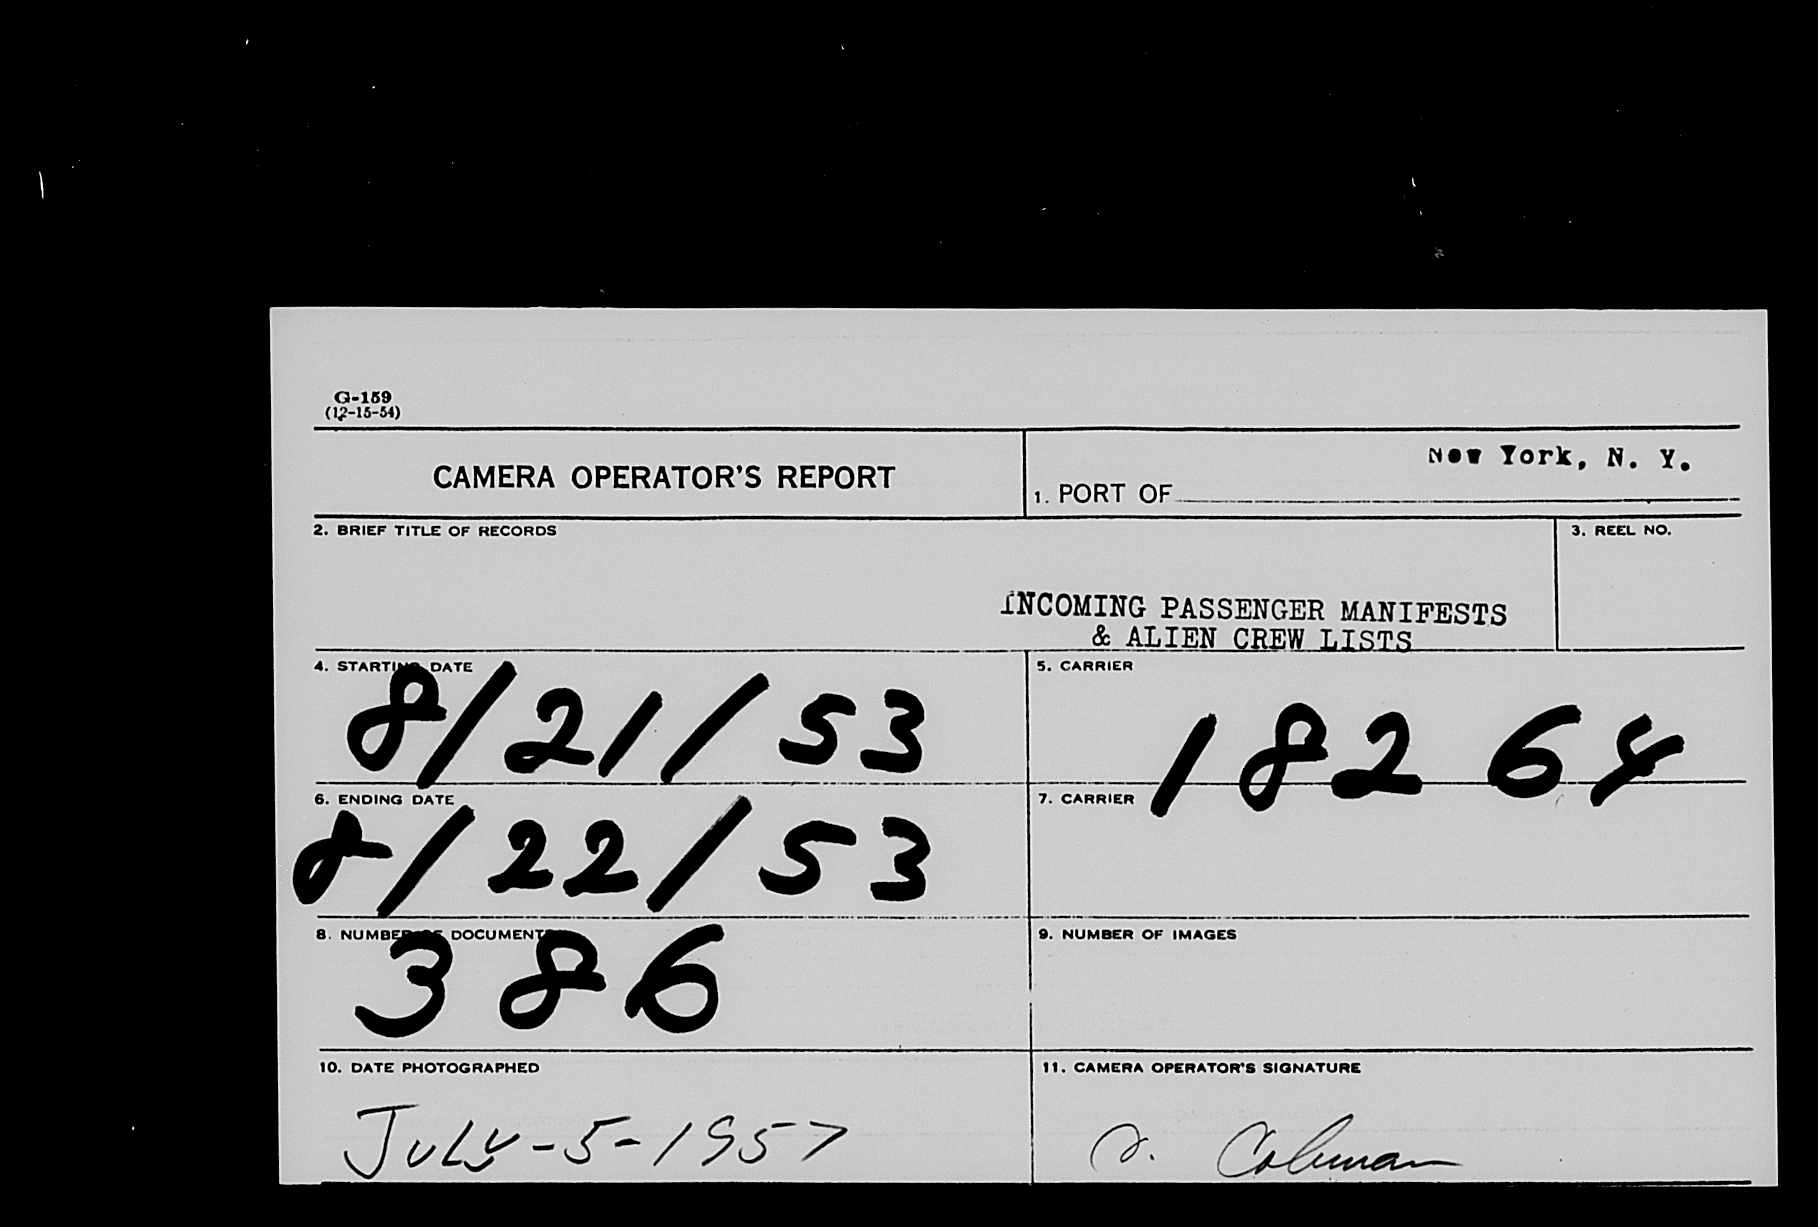 G-159
(12-15-54)
CAMERA OPERATOR'S REPORT
New York, N. Y.
1. PORT OF
2. BRIEF TITLE OF RECORDS
3. REEL NO.
INCOMING PASSENGER MANIFESTS
& ALIEN CREW LISTS
4. STARTING DATE
8/21/53
5. CARRIER
18264
6. ENDING DATE
8/22/53
7. CARRIER
8. NUMBER OF DOCUMENTS
386
9. NUMBER OF IMAGES
10. DATE PHOTOGRAPHED
JULY-5-1957
11. CAMERA OPERATOR'S SIGNATURE